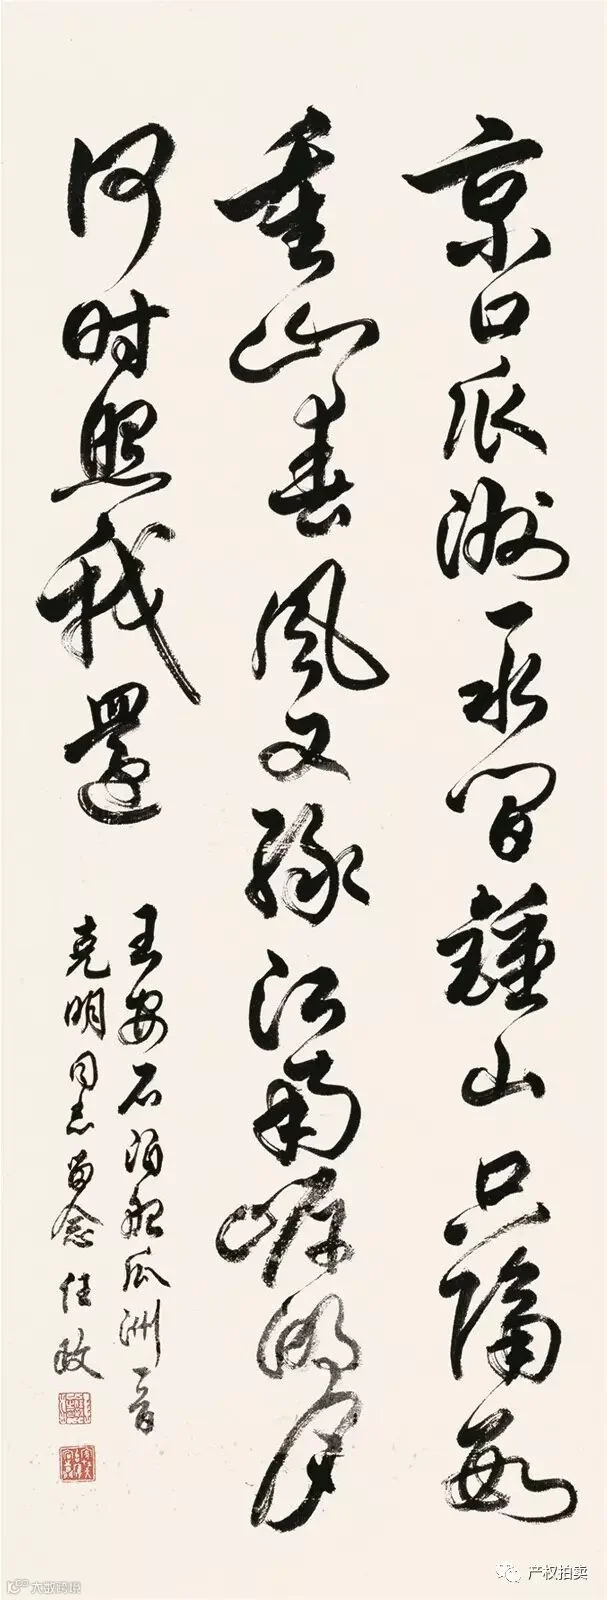 京口瓜洲一水間鍾山只隔數
重山春風又綠江南岸明月
何时照我還
王安石泊船瓜洲一首
克明同志留念 任政
产权拍卖